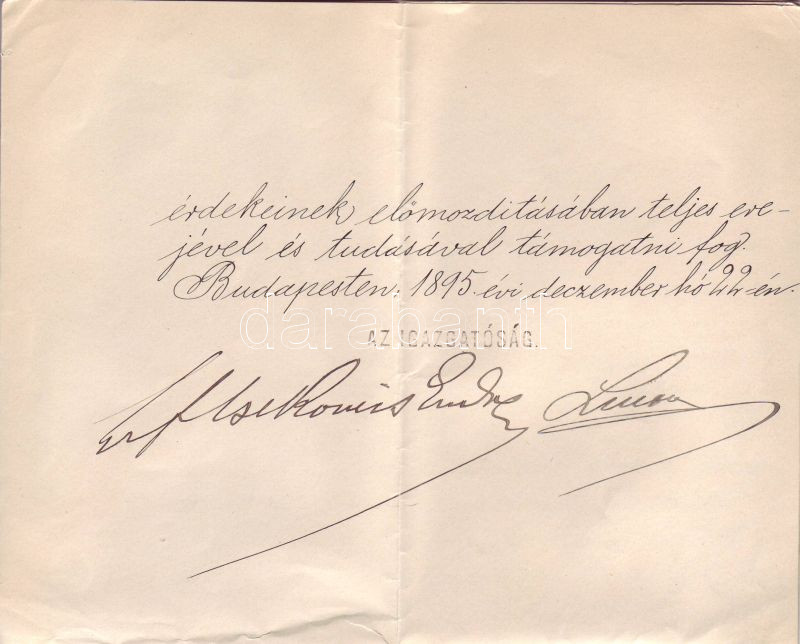 érdekeinek előmozditásában teljes ere-
jével és tudásával támogatni fog.
Budapesten, 1895. évi deczember hó 22-én.
darabanth
AZ IGAZGATÓSÁG.
Endre